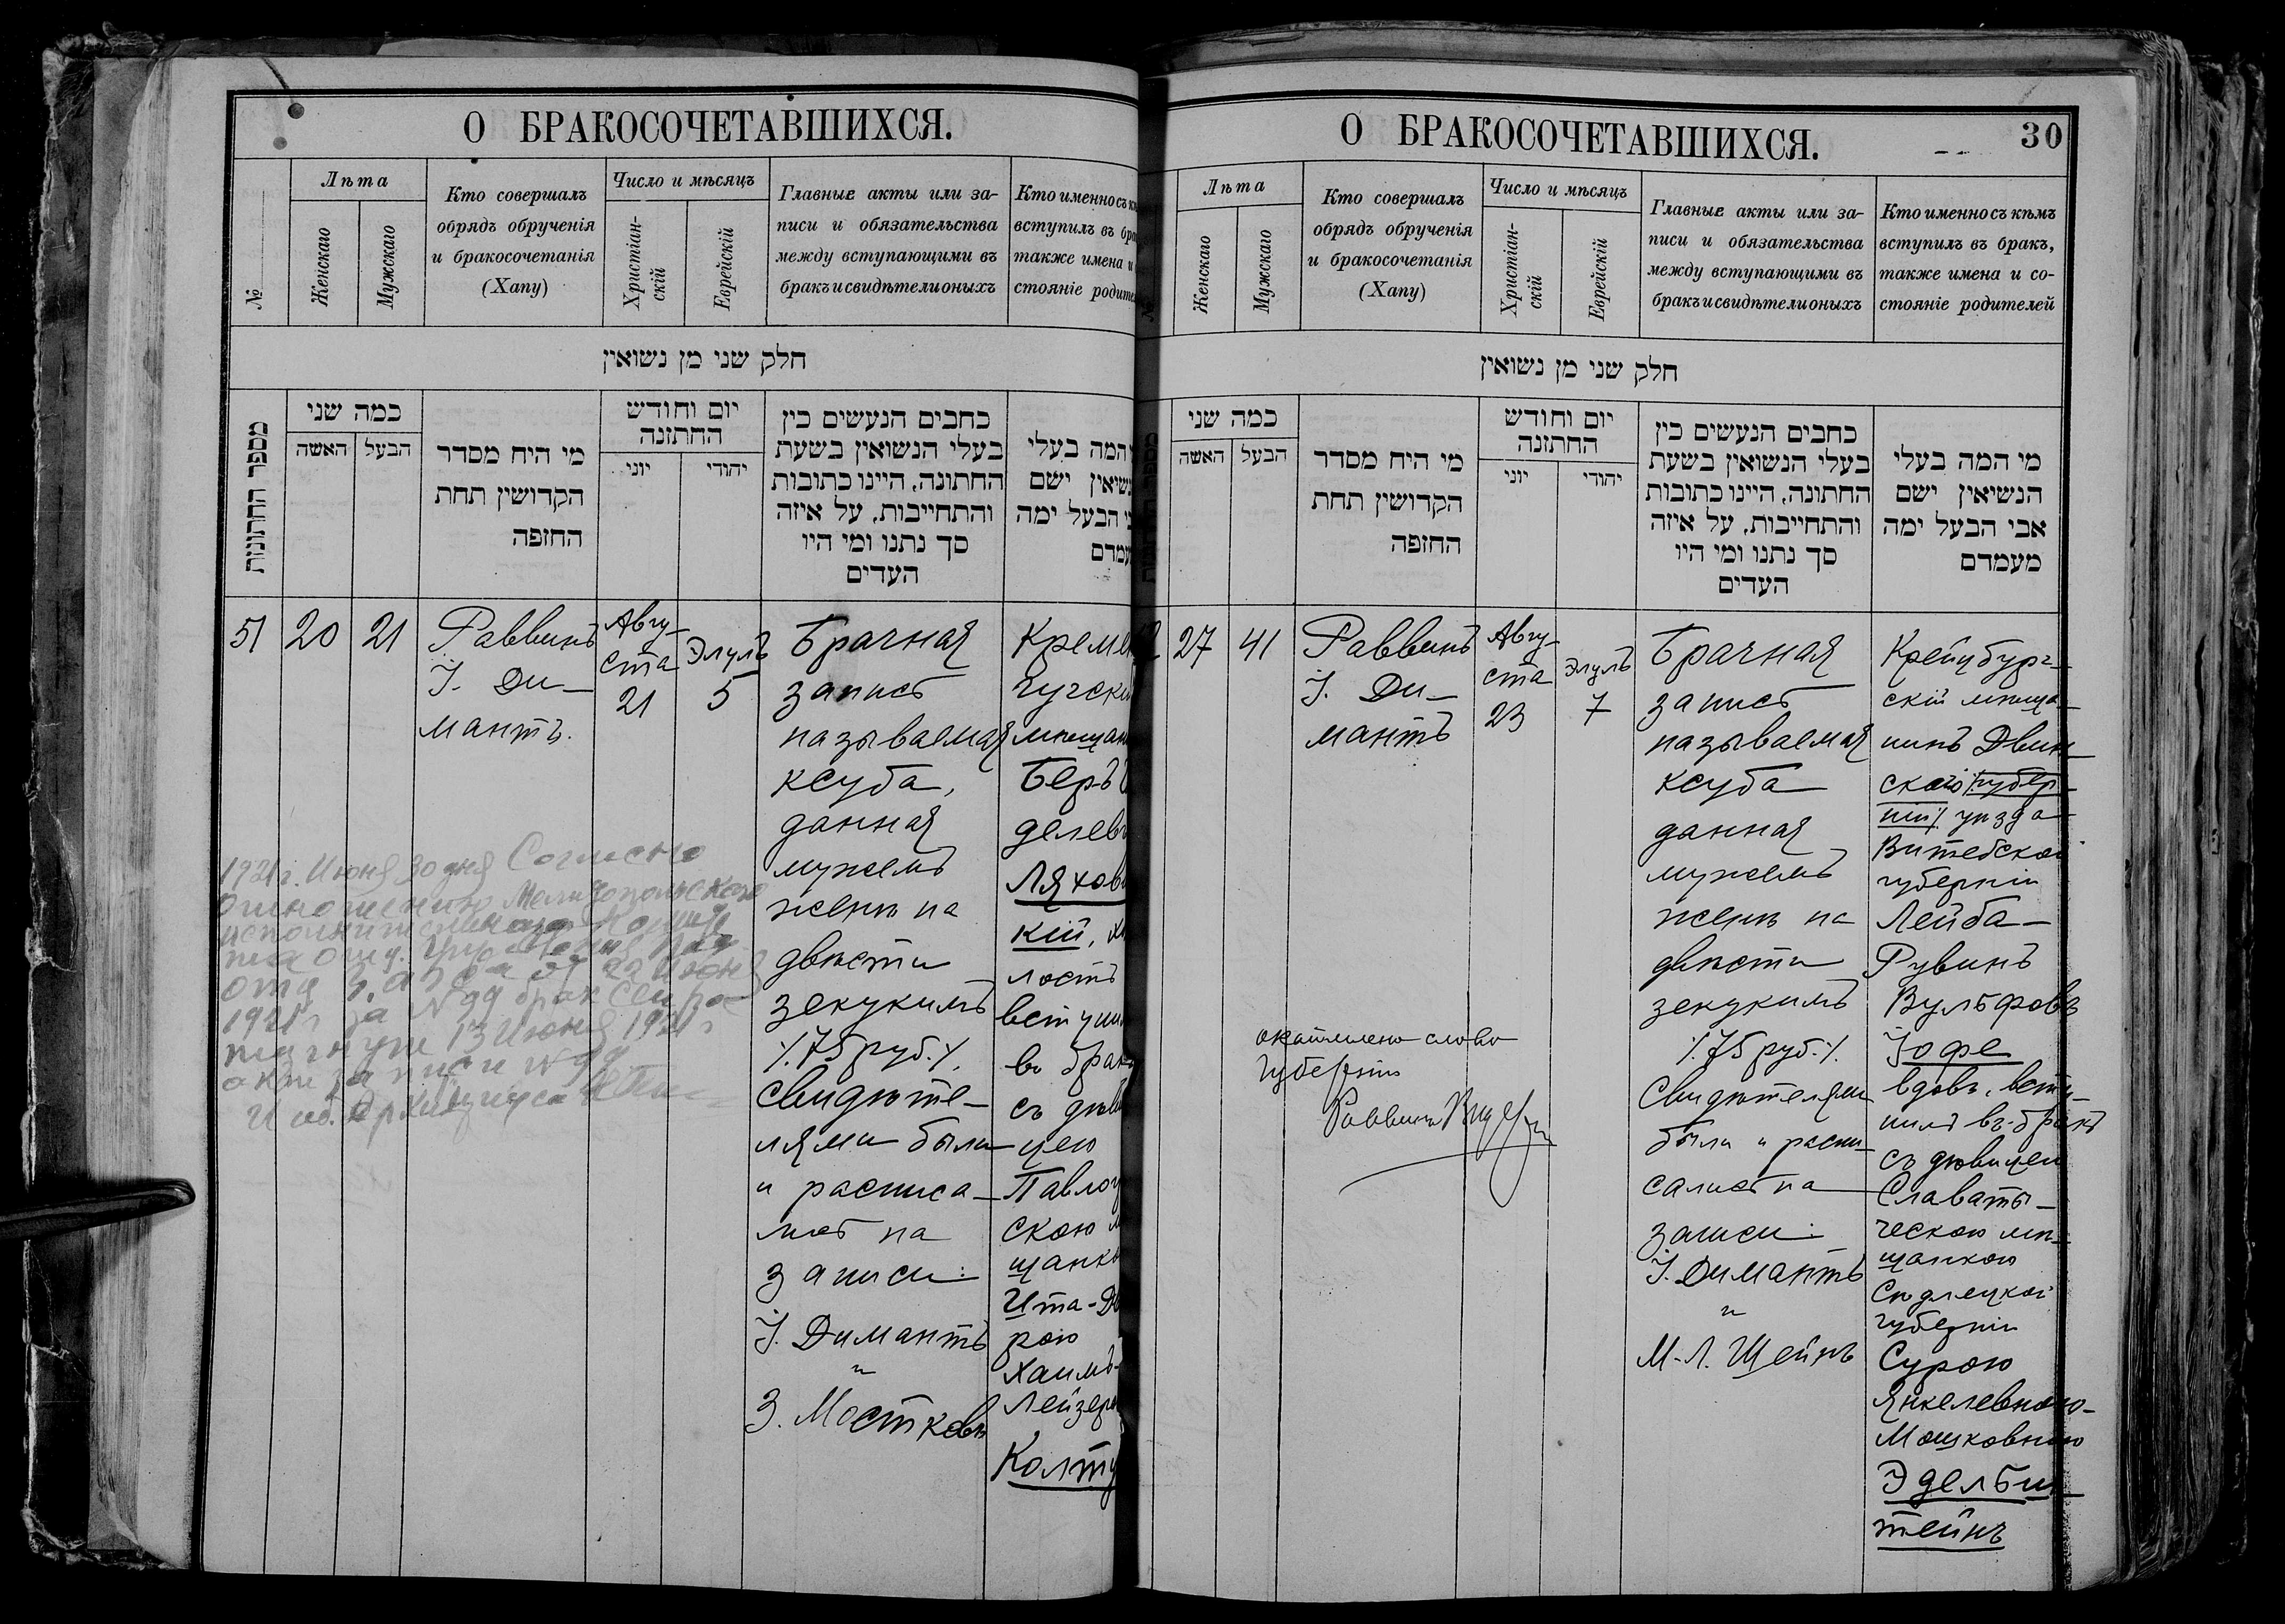 О БРАКОСОЧЕТАВШИХСЯ.
№
Лѣта
Женскаго
Мужскаго
Кто совершалъ
обрядъ обрученія
и бракосочетанія
(Хапу)
Число и мѣсяцъ
Христіан-
скій
Еврейскій
Главные акты или за-
писи и обязательства
между вступающими въ
бракъ и свидѣтели оныхъ
Кто именно съ
вступилъ въ
также имена и
стояніе
חלק שני מן נשואין
מספר החתונות
כמה שני
האשה
הבעל
מי היח מסדר
הקדושין תחת
החזפה
יום וחודש
החתזנה
יוני
יהודי
כחבים הנעשים כין
בעלי הנשואין בשעת
החתונה, היינו כתובות
והתחייבות, על איזה
סך נתנו ומי היו
העדים
המה בעלי
ישם
הבעל ימה
51
20
21
Раввинъ
І. Ди-
мантъ.
Авгу-
ста
21
Элулъ
5
Брачная
запись
называемая
ксуба,
данная
мужемъ
женѣ на
двѣсти
зекукимъ
/.75 руб./.
Свидѣте-
лями были
и расписа-
лись на
записи:
І. Димантъ
и
З. Мостковъ
Кремен
чугскі
мѣщан
Беръ
делев
Ляхов
кій,
лость
вступи
въ брак
съ дѣв
цею
Павло
скою
щанк
Ита-
рою
Хаимъ-
Лейзер
Колту
1921 г. Июня 30 дня Согласно
отношению Мелитопольского
1921 г за № 99 брак сей рас
13 Июня 1921 г.
О БРАКОСОЧЕТАВШИХСЯ.
30
Лѣта
Женскаго
Мужскаго
Кто совершалъ
обрядъ обрученія
и бракосочетанія
(Хапу)
Число и мѣсяцъ
Христіан-
скій
Еврейскій
Главные акты или за-
писи и обязательства
между вступающими въ
бракъ и свидѣтели оныхъ
Кто именно съ кѣмъ
вступилъ въ бракъ,
также имена и со-
стояніе родителей
חלק שני מן נשואין
כמה שני
האשה
הבעל
מי היח מסדר
הקדושין תחת
החזפה
יום וחודש
החתזנה
יוני
יהודי
כחבים הנעשים כין
בעלי הנשואין בשעת
החתונה, היינו כתובות
והתחייבות, על איזה
סך נתנו ומי היו
העדים
מי המה בעלי
הנשיאין ישם
אבי הבעל ימה
מעמדם
27
41
Раввинъ
І. Ди-
мантъ
Авгу-
ста
23
Элулъ
7
Брачная
запись
называемая
ксуба
данная
мужемъ
женѣ на
двѣсти
зекукимъ
/.75 руб./.
Свидѣтелями
были и распи-
сались на
записи:
І. Димантъ
и
М.-Л. Шейнъ
Крейцбург-
скій мѣща-
нинъ Двин-
скаго /губер-
ніи/ уѣзда
Витебской
губерніи
Лейба-
Рувинъ
Вульфовъ
Іофе
вдовъ, всту-
пилъ въ бракъ
съ дѣвицею
Славаты-
ческою мѣ-
щанкою
Сѣдлецкой
губерніи
Сурою
Янкелевною-
Мошковною
Эдельбш
тейнъ
слово
губерніи
Раввинъ